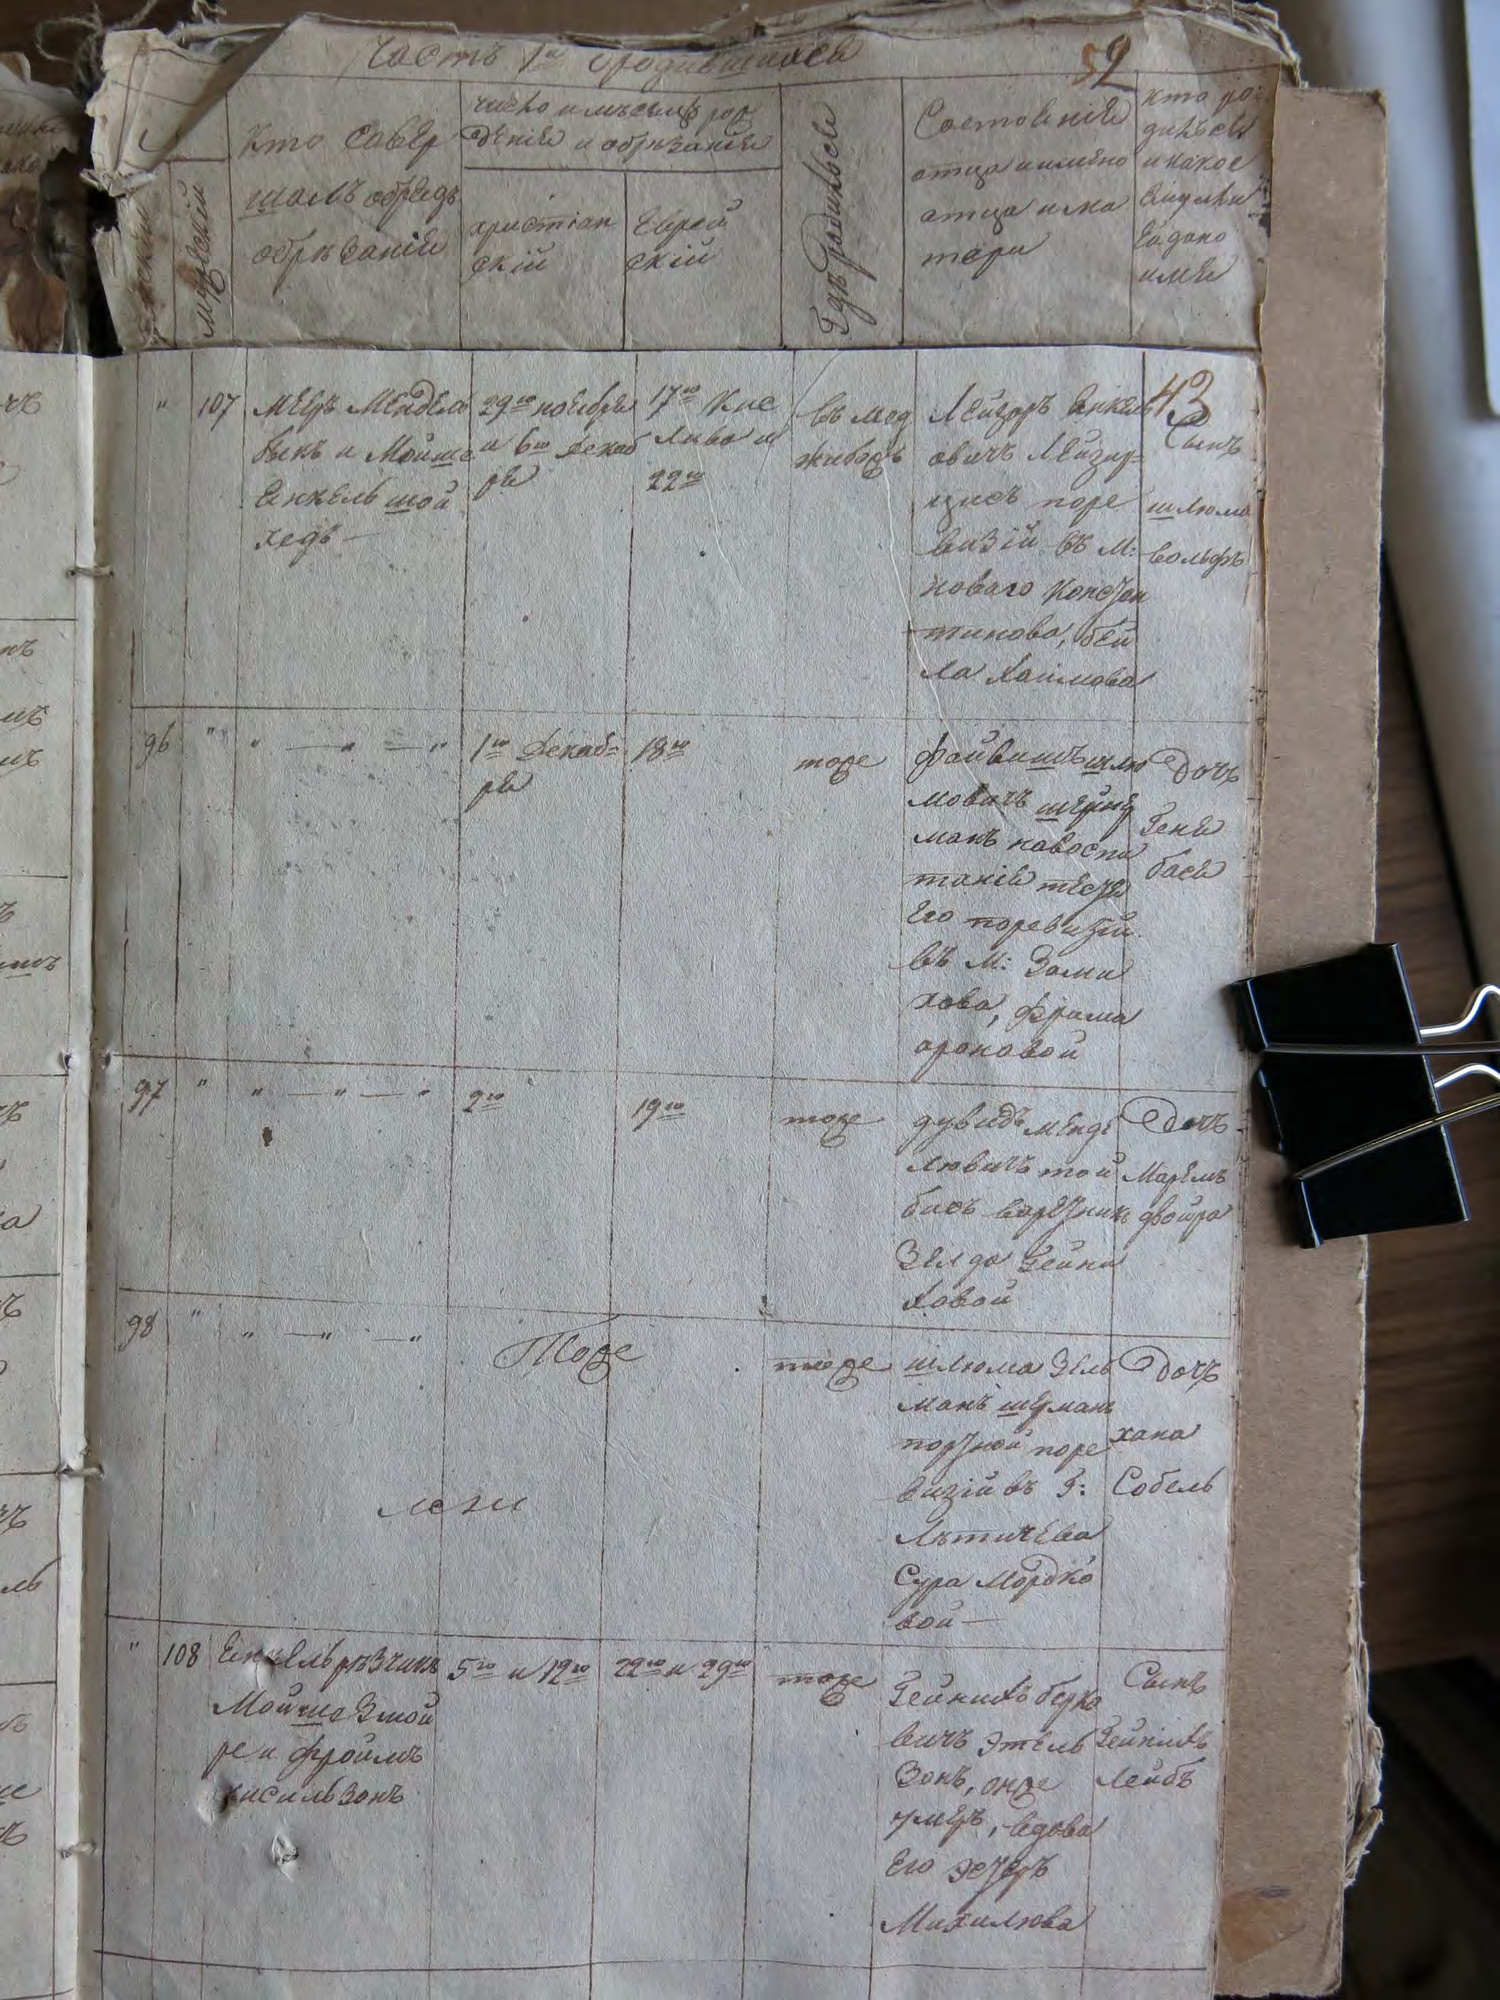 Часть 1я о родившихся
52
№
женский
мужескій
кто совер
шалъ обрядъ
обрѣзанія
число и мѣсяцъ рож
денія и обрѣзанія
христіан
скій
Еврей
скій
Гдѣ родился
Состояніе
отца и имяно
отца и ма
тери
кто ро
дился
и какое
ему или
ей дано
имя
43
" 107
Мееръ Мендель
быкъ и Мойше
Енкель шой
хедъ —
29го ноября
и 6го Декаб
ря
17го Кис
лива и
22го
въ Мед
жибожъ
Лейзоръ Енкель
овичъ
по ре
визіи въ М:
Новаго Констан
тинова, Бей
ла Хаимова
Сынъ
Шлюма
Вольфъ
96 " " — " — "
1го Декаб=
ря
18го
тоже
Файвишъ Шлю
мовичъ
манъ на воспи
таніи тестя
Его по ревизіи
въ М: Зами
хова, Фрима
ароновой
Дочь
Геня
бася
97 " " — " — "
2го
19го
тоже
Дувидъ Менде
лювичъ той
бисъ
Зелда Гейни
ховой
Дочь
Маремъ
двойра
98 " " — " — "
Тоже
тоже
Шлюма Зель
манъ Шерманъ
портной по ре
визіи въ Г:
Лѣтичева
Сура Мордко
вой —
Дочь
хана
Собель
" 108
Енкель рѣзчикъ
Мойше Змой
ре и Фроимъ
кисильзонъ
5го и 12го
22го и 29го
тоже
Гейнихъ берко
вичъ Этель
Зонъ, онже
умеръ, вдова
Его Эстеръ
Михилюва
Сынъ
Гейнихъ
Лейбъ